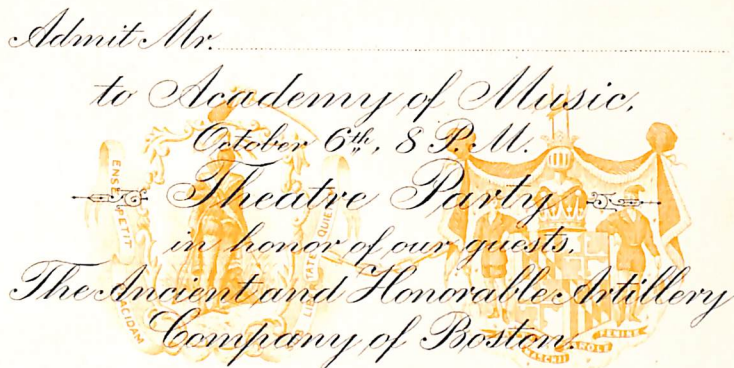 Admit Mr.
to Academy of Music,
October 6th, 8 P.M.
Theatre Party
in honor of our guests,
The Ancient and Honorable Artillery
Company of Boston.
ENSE PETIT
PLACIDAM
LIBERTATE QUIETEM
FATTI MASCHII PAROLE FEMINE